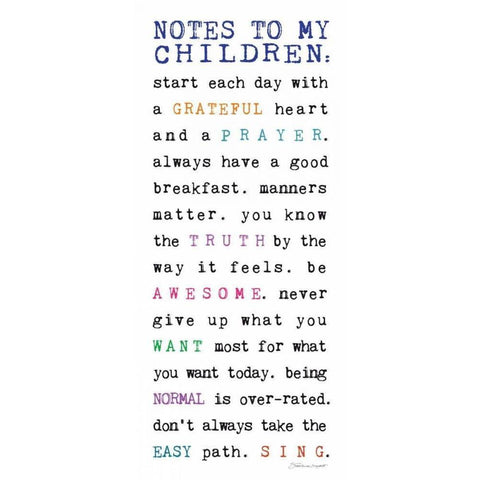 NOTES TO MY
CHILDREN:
start each day with
a GRATEFUL heart
and a PRAYER.
always have a good
breakfast. manners
matter. you know
the TRUTH by the
way it feels. be
AWESOME. never
give up what you
WANT most for what
you want today. being
NORMAL is over-rated.
don't always take the
EASY path. SING.